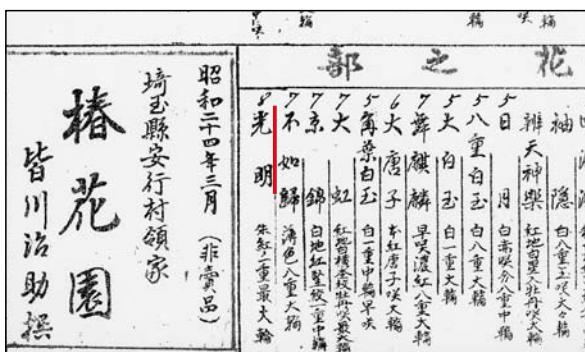 花之部
袖隠 白八重玉咲大々輪
辨天神樂 紅地白星入牡丹咲大輪
5 日月 八重中輪
5 八重白玉 白八重大輪
5 大白玉 白一重大輪
7 舞麒麟 早咲濃紅八重大輪
6 大唐子 本紅唐子咲大輪
5 角葉白玉 白一重中輪早咲
7 大虹 牡丹咲最大輪
7 京錦 白地紅竪紋一重中輪
7 不如歸 薄色八重大輪
8 光明 朱紅一重最大輪
昭和二十四年三月(非賣品)
埼玉縣安行村領家
椿花園
皆川治助撰